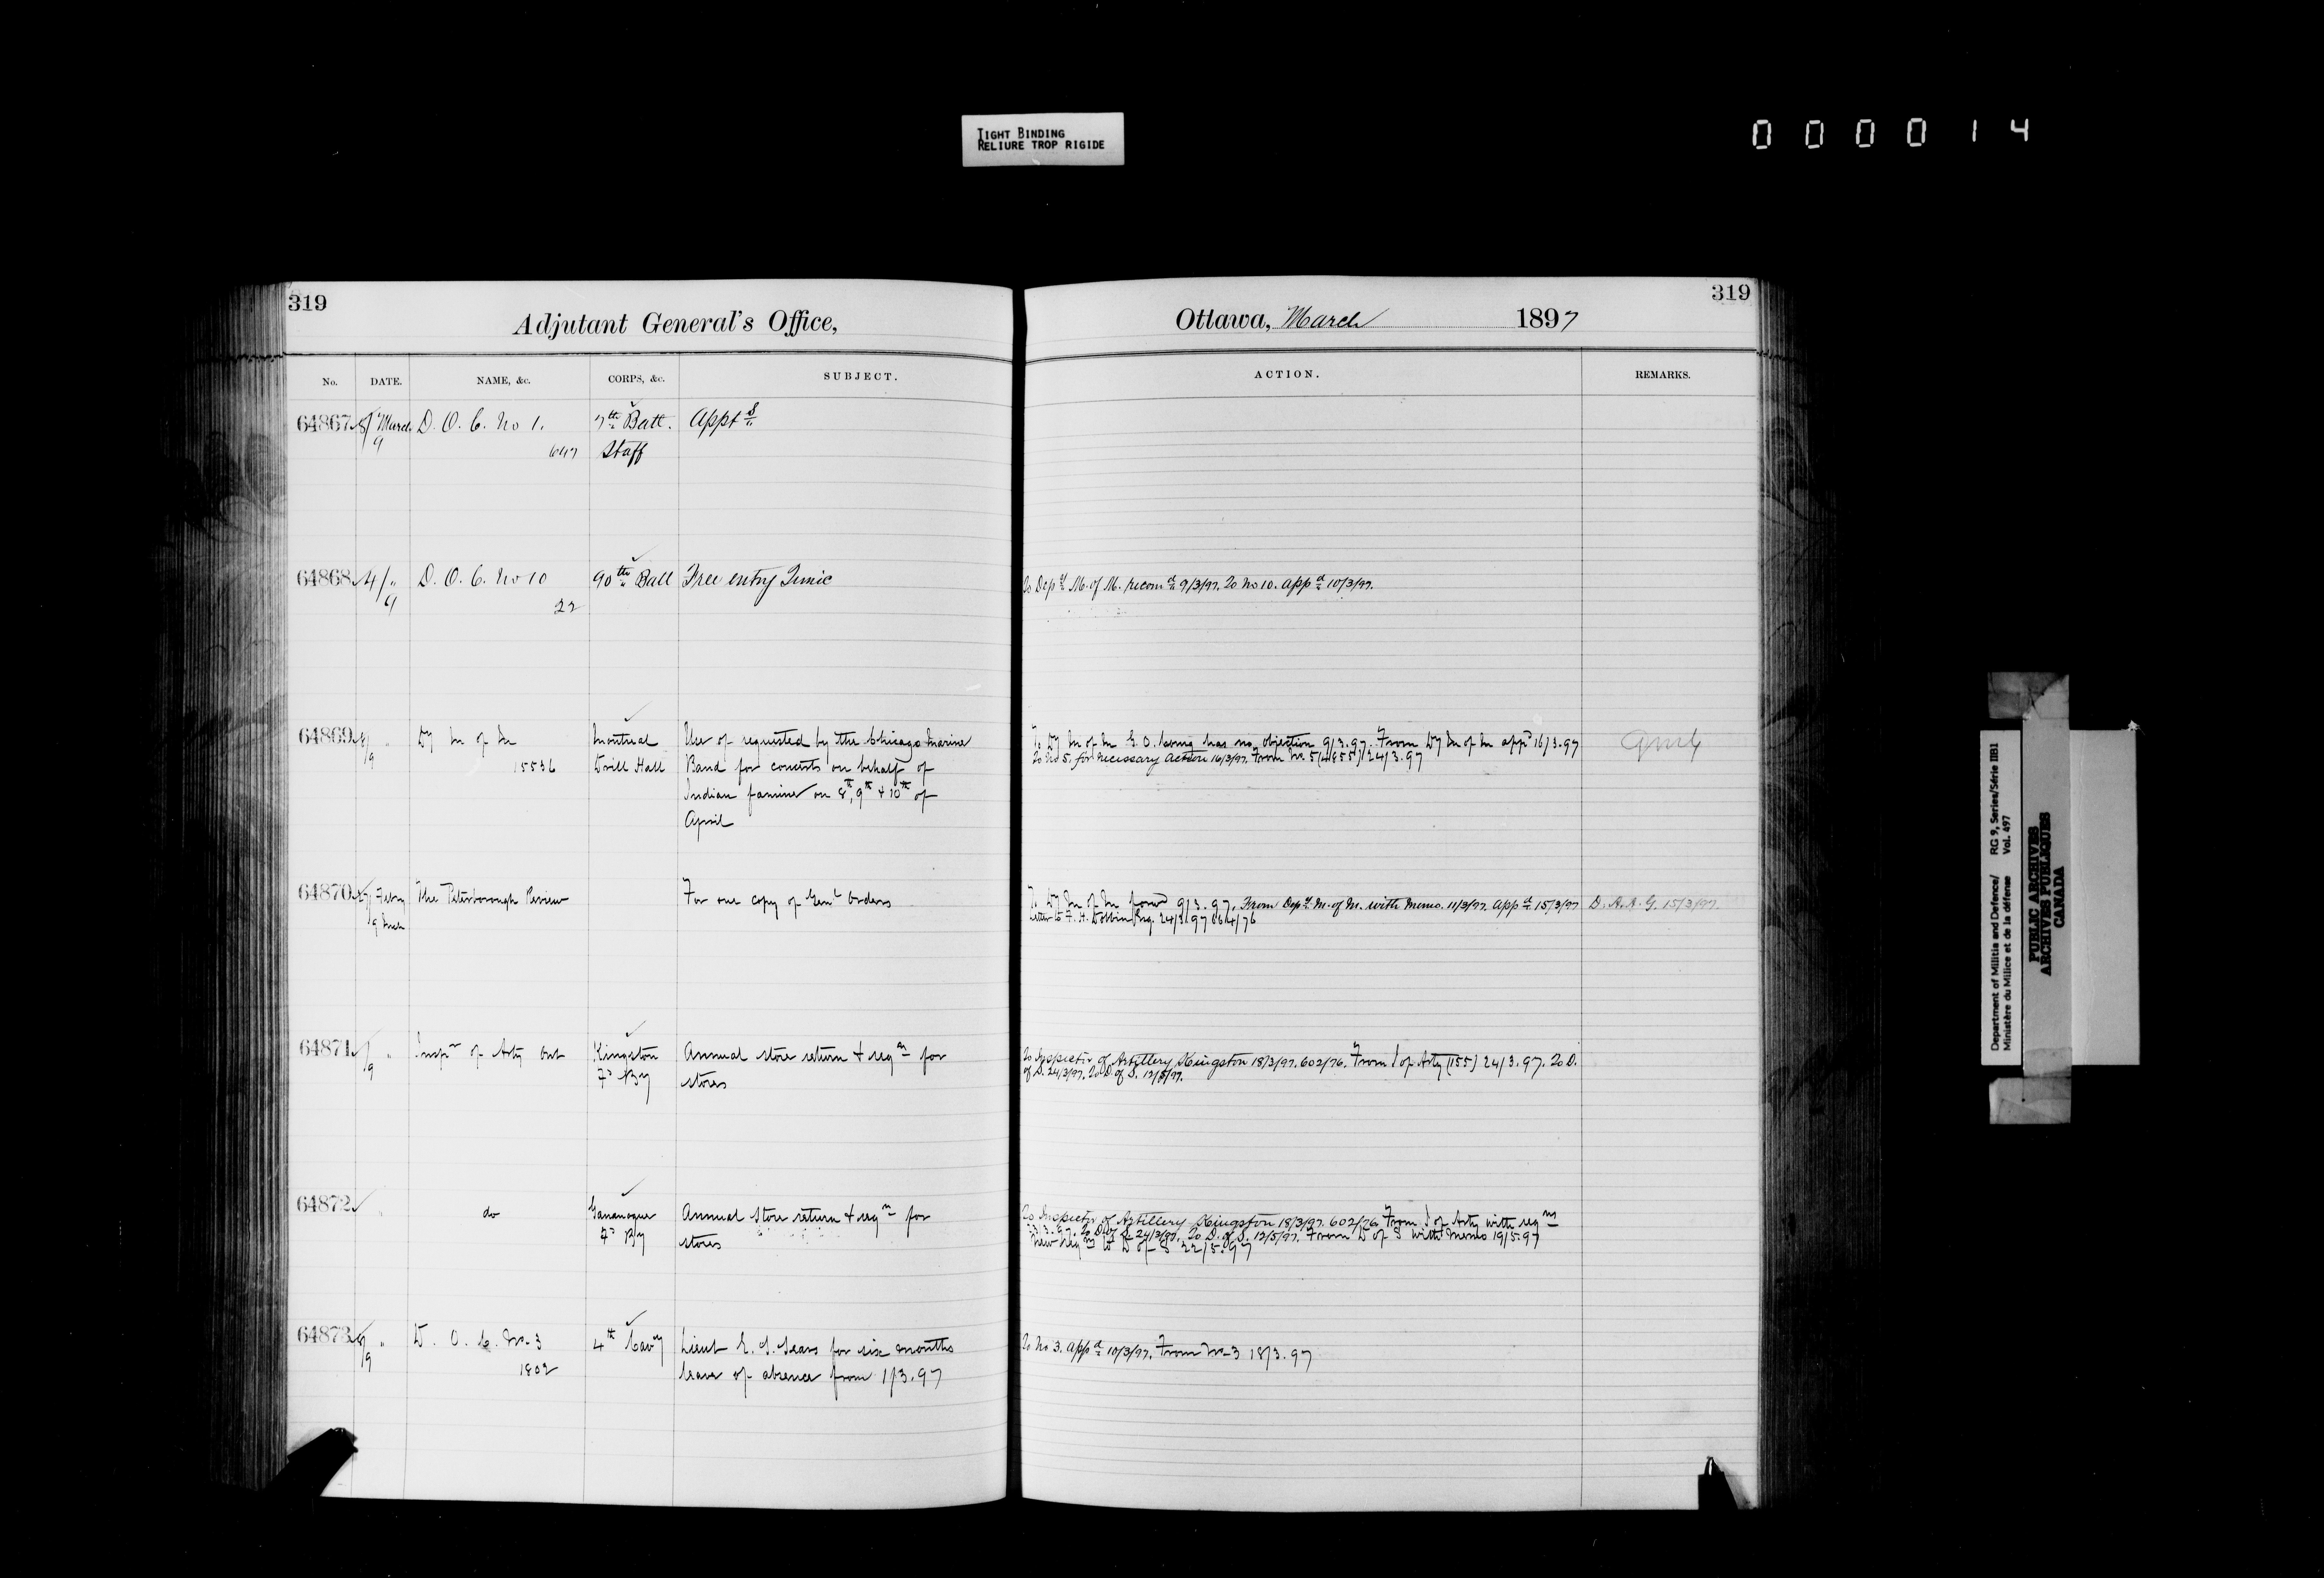 TIGHT BINDING
RELIURE TROP RIGIDE
000014
319
Adjutant General's Office,
Ottawa, March 1897
319
No. DATE. NAME, &c. CORPS, &c. SUBJECT. ACTION. REMARKS.
64867 8/9 March D. O. C. No 1. 7th Batt. Appts
647 Staff
64868 4/9 " D. O. C. No 10 90th Batt Free entry Tunic To Depy M. of M. recomd 9/3/97. To No 10. appd 10/3/97.
22
64869 8/9 " Dy M of M Montreal Use of requested by the Chicago Marine To Dy M of M G. O. Comg has no objection 9/3.97. From Dy M of M appd 16/3.97
15536 Drill Hall Band for concerts on behalf of To No 5. for necessary action 16/3/97. From No 5 (4855) 24/3.97
Indian famine on 8th, 9th & 10th of
April
64870 27 Febry The Peterborough Review For one copy of Genl Orders To Dy M of M forwd 9/3.97. From Depy M. of M. with memo. 11/3/97. Appd 15/3/97 D. A. A. G. 15/3/97.
9 March Letter to F. H. Dobbin Esq. 24/3/97
64871 /9 " Inspr of Arty Ont Kingston Annual store return & reqn for To Inspector of Artillery Kingston 18/3/97. 602/76. From I of Arty (155) 24/3.97. To D.
Fd By stores of S. 24/3/97. To D. of S. 12/5/97.
64872 " do Gananoque Annual Store return & reqn for To Inspector of Artillery Kingston 18/3/97. 602/76 From I of Arty with reqns
Fd By stores To D. of S. 24/3/97. To D. of S. 12/5/97. From D of S with memo 19/5.97
New reqn to D of S 22/5.97
64873 8/9 " D. O. C. No 3 4th Cavy Lieut E. G. Sears for six months To No 3. appd 10/3/97. From No 3 18/3.97
1802 leave of absence from 1/3.97
Department of Militia and Defence/ RG 9, Series/Série IIB1
Ministère du Milice et de la défense Vol. 497
PUBLIC ARCHIVES
ARCHIVES PUBLIQUES
CANADA